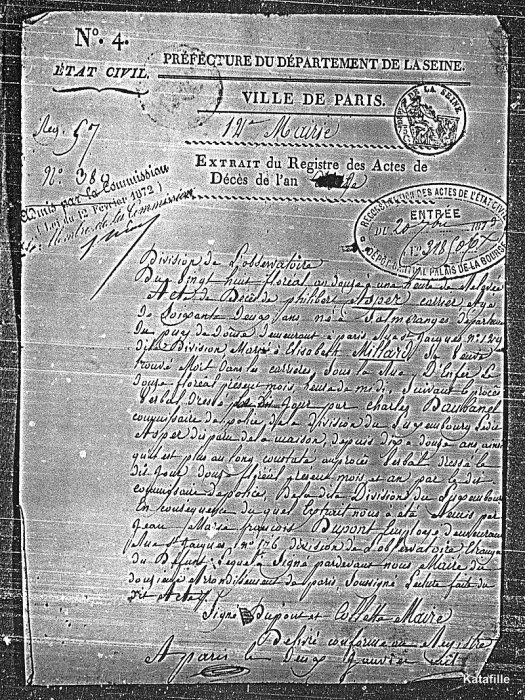 N.º 4.
ÉTAT CIVIL.
PRÉFECTURE DU DÉPARTEMENT DE LA SEINE.
VILLE DE PARIS.
12e Mairie
EXTRAIT du Registre des Actes de
Décès de l'an
Reg. 57
Nº 380
Admis par la Commission
(Loi du 12 Février 1872)
Le Membre de la Commission
RECONSTITUTION DES ACTES DE L'ÉTAT CIVIL
ENTRÉE
DÉPARTEMENTAL PALAIS DE LA BOURSE
Division de L'observatoire
Du vingt huit floréal an douze à une heure de relevée
Acte de Décès de philibert Asper carrier agé
De Soixante Deux ans né à Salmeranges département
Du puy de dome demeurant à paris rue St Jacques nº
dite Division Marié à Elisabeth Millard
trouvé Mort Dans les carrières sous la Rue D'Enfer Le
Douze floréal présent mois heure de midi, suivant le procès
Verbal dressé Dix Jour par Charles Daubanel
commissaire de police de la division du Luxembourg Ledit
Asper disparu de sa maison, depuis dix à douze ans ainsi
qu'il est plus au long constaté au procès Verbal dressé le
dit Jour douze floréal présent mois et an par le dit
commissaire de police De la dite Division du Luxembourg
En conséquence du quel Extrait nous a été Remis par
Jean Marie françois Dupont Employé demeurant
Rue St Jacques nº 176, division de L'observatoire
du Défunt, Lequel a Signé pardevant nous Maire du
douzième arrondissement de paris, soussigné Lecture faite du
Acte
Signé Dupont et Collette Maire
Délivré conforme au Registre
A paris le Deux Janvier
Katafille